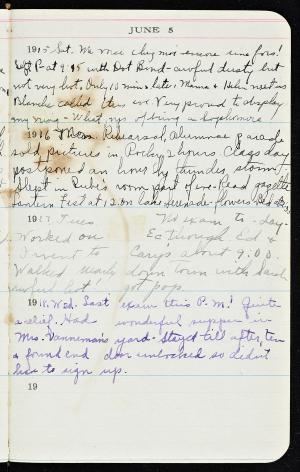 JUNE 5
1915 Sat. We nice
Left P- at 9:15 with Dot Bond - awful dusty but
not very hot. Only 10 mins late, Mama & Helen met us
called then eve. Very proud to display
my - What of being a Sophomore
1916 Mon. Rehearsal, Alumnae parade
sold pictures in 2 hours Class day
postponed an hour by thunder storm.
Slept in room part of eve. Read gazette
Lantern Fest at 12. on lake serenade - flowers
1917 Tues No exam to-day-
Worked on Ec through Ed &
I went to about 9:00.
Walked nearly down town with Sarah
awful hot! got pop.
1918. Wed. Last exam this P.M.! Quite
a relief. Had wonderful supper in
Mrs. Vanneman's yard. Stayed till after ten
& found end door unlocked so didn't
have to sign up.
19